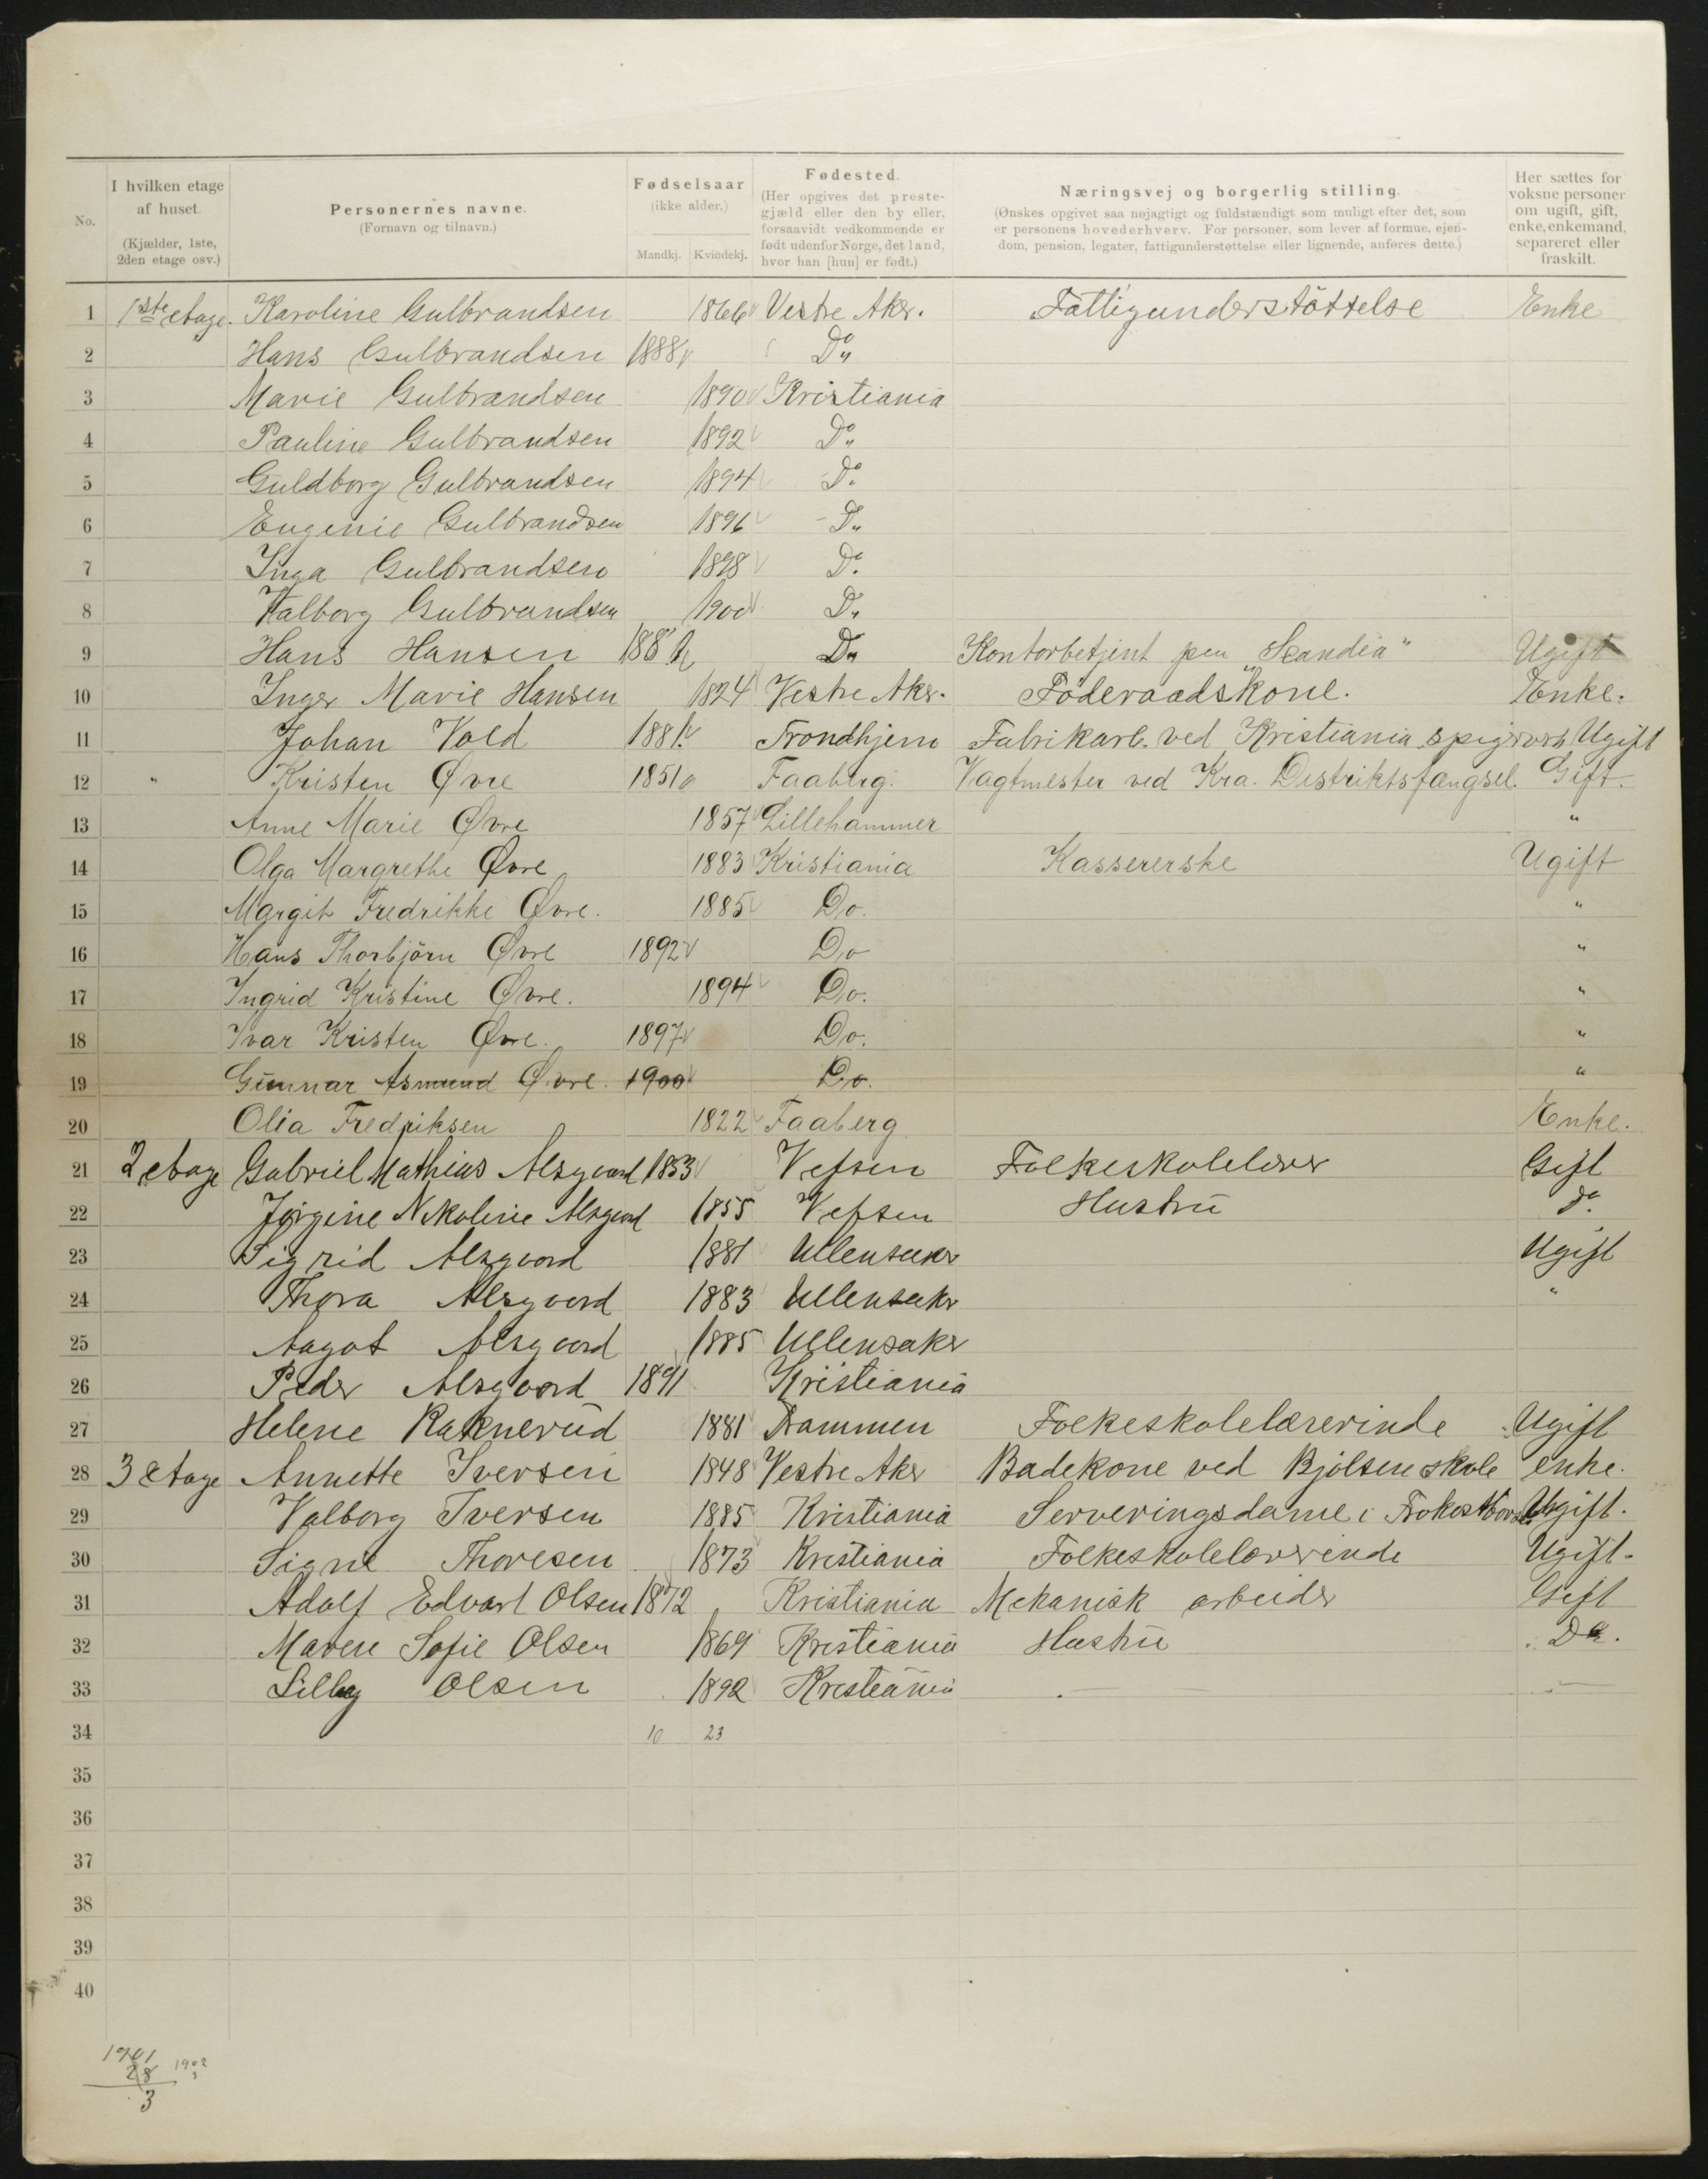 No. | I hvilken etage af huset. (Kjælder, 1ste, 2den etage osv.) | Personernes navne. (Fornavn og tilnavn.) | Fødselsaar (ikke alder.) Mandkj. Kvindekj. | Fødested. (Her opgives det prestegjæld eller den by eller, forsaavidt vedkommende er født udenfor Norge, det land, hvor han [hun] er født.) | Næringsvej og borgerlig stilling. (Ønskes opgivet saa nøjagtigt og fuldstændigt som muligt efter det, som er personens hovederhverv. For personer, som lever af formue, ejendom, pension, legater, fattigunderstøttelse eller lignende, anføres dette.) | Her sættes for voksne personer om ugift, gift, enke, enkemand, separeret eller fraskilt.
1 1ste etage. Karoline Gulbrandsen 1866 Vestre Aker. Fattigunderstøttelse Enke
2 Hans Gulbrandsen 1888 Do
3 Marie Gulbrandsen 1890 Kristiania
4 Pauline Gulbrandsen 1892 Do
5 Guldborg Gulbrandsen 1894 Do
6 Eugenie Gulbrandsen 1896 Do
7 Inga Gulbrandsen 1898 Do
8 Valborg Gulbrandsen 1900 Do
9 Hans Hansen Do Kontorbetjent paa "Scandia" Ugift
10 Inger Marie Hansen 1824 Vestre Aker. Föderaadskone. Enke.
11 Johan Vold 1881 Trondhjem Fabrikarb. ved Kristiania spigerverk Ugift
12 " Kristen Øvre 1851 Faaberg. Vagtmester ved Kra. Distriktsfængsel. Gift.
13 Anne Marie Øvre 1857 Lillehammer "
14 Olga Margrethe Øvre 1883 Kristiania Kassererske Ugift
15 Margit Fredrikke Øvre. 1885 Do. "
16 Hans Thorbjörn Øvre 1892 Do "
17 Ingrid Kristine Øvre. 1894 Do. "
18 Ivar Kristen Øvre. 1897 Do. "
19 Gunnar Asmund Øvre. 1900 Do. "
20 Olia Fredriksen 1822 Faaberg Enke.
21 2 etage Gabriel Mathias Alsgaard 1853 Vefsen Folkeskolelærer Gift
22 Jørgine Nikoline Alsgaard 1855 Vefsen Hustru Do
23 Sigrid Alsgaard 1881 Ullensaker Ugift
24 Thora Alsgaard 1883 Ullensaker "
25 Aagot Alsgaard 1885 Ullensaker
26 Peder Alsgaard 1891 Kristiania
27 Helene Raknerud 1881 Drammen Folkeskolelærerinde Ugift
28 3 etage Annette Iversen 1848 Vestre Aker Badekone ved Bjølsen skole enke.
29 Valborg Iversen 1885 Kristiania Serveringsdame i Ugift.
30 Signe Thoresen 1873 Kristiania Folkeskolelærerinde Ugift.
31 Adolf Edvart Olsen 1872 Kristiania Mekanisk arbeider Gift
32 Maren Sofie Olsen 1869 Kristiania Hustru Do.
33 Lilly Olsen 1892 Kristiania — —
34 10 23
35
36
37
38
39
40
1901 1902
28
3